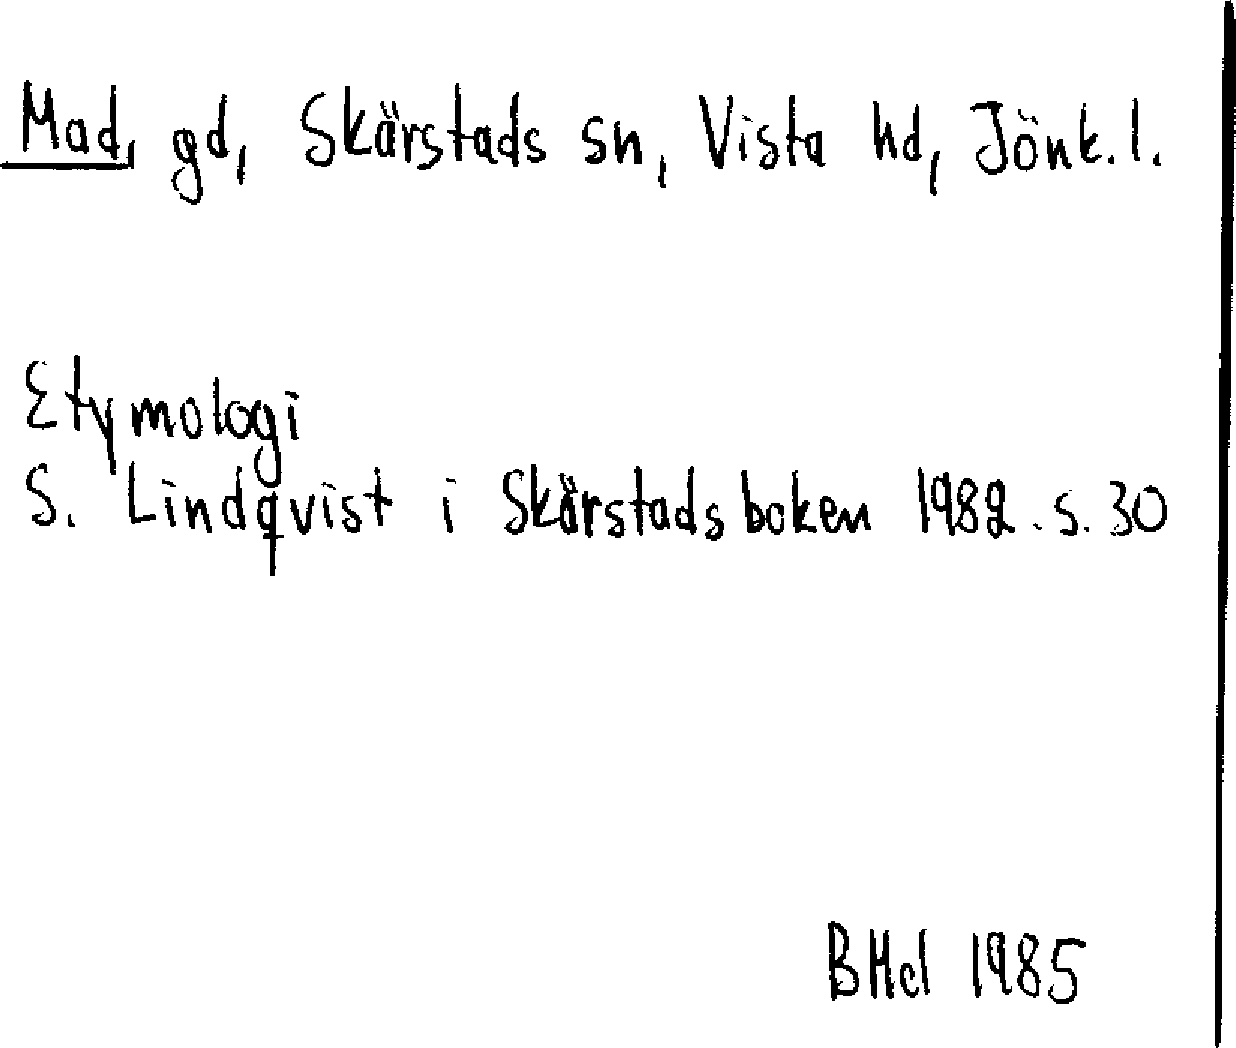 Mad, gd, Skärstads sn, Vista hd, Jönk. l.
Etymologi
S. Lindqvist i Skärstadsboken 1982. s. 30
BHd 1985